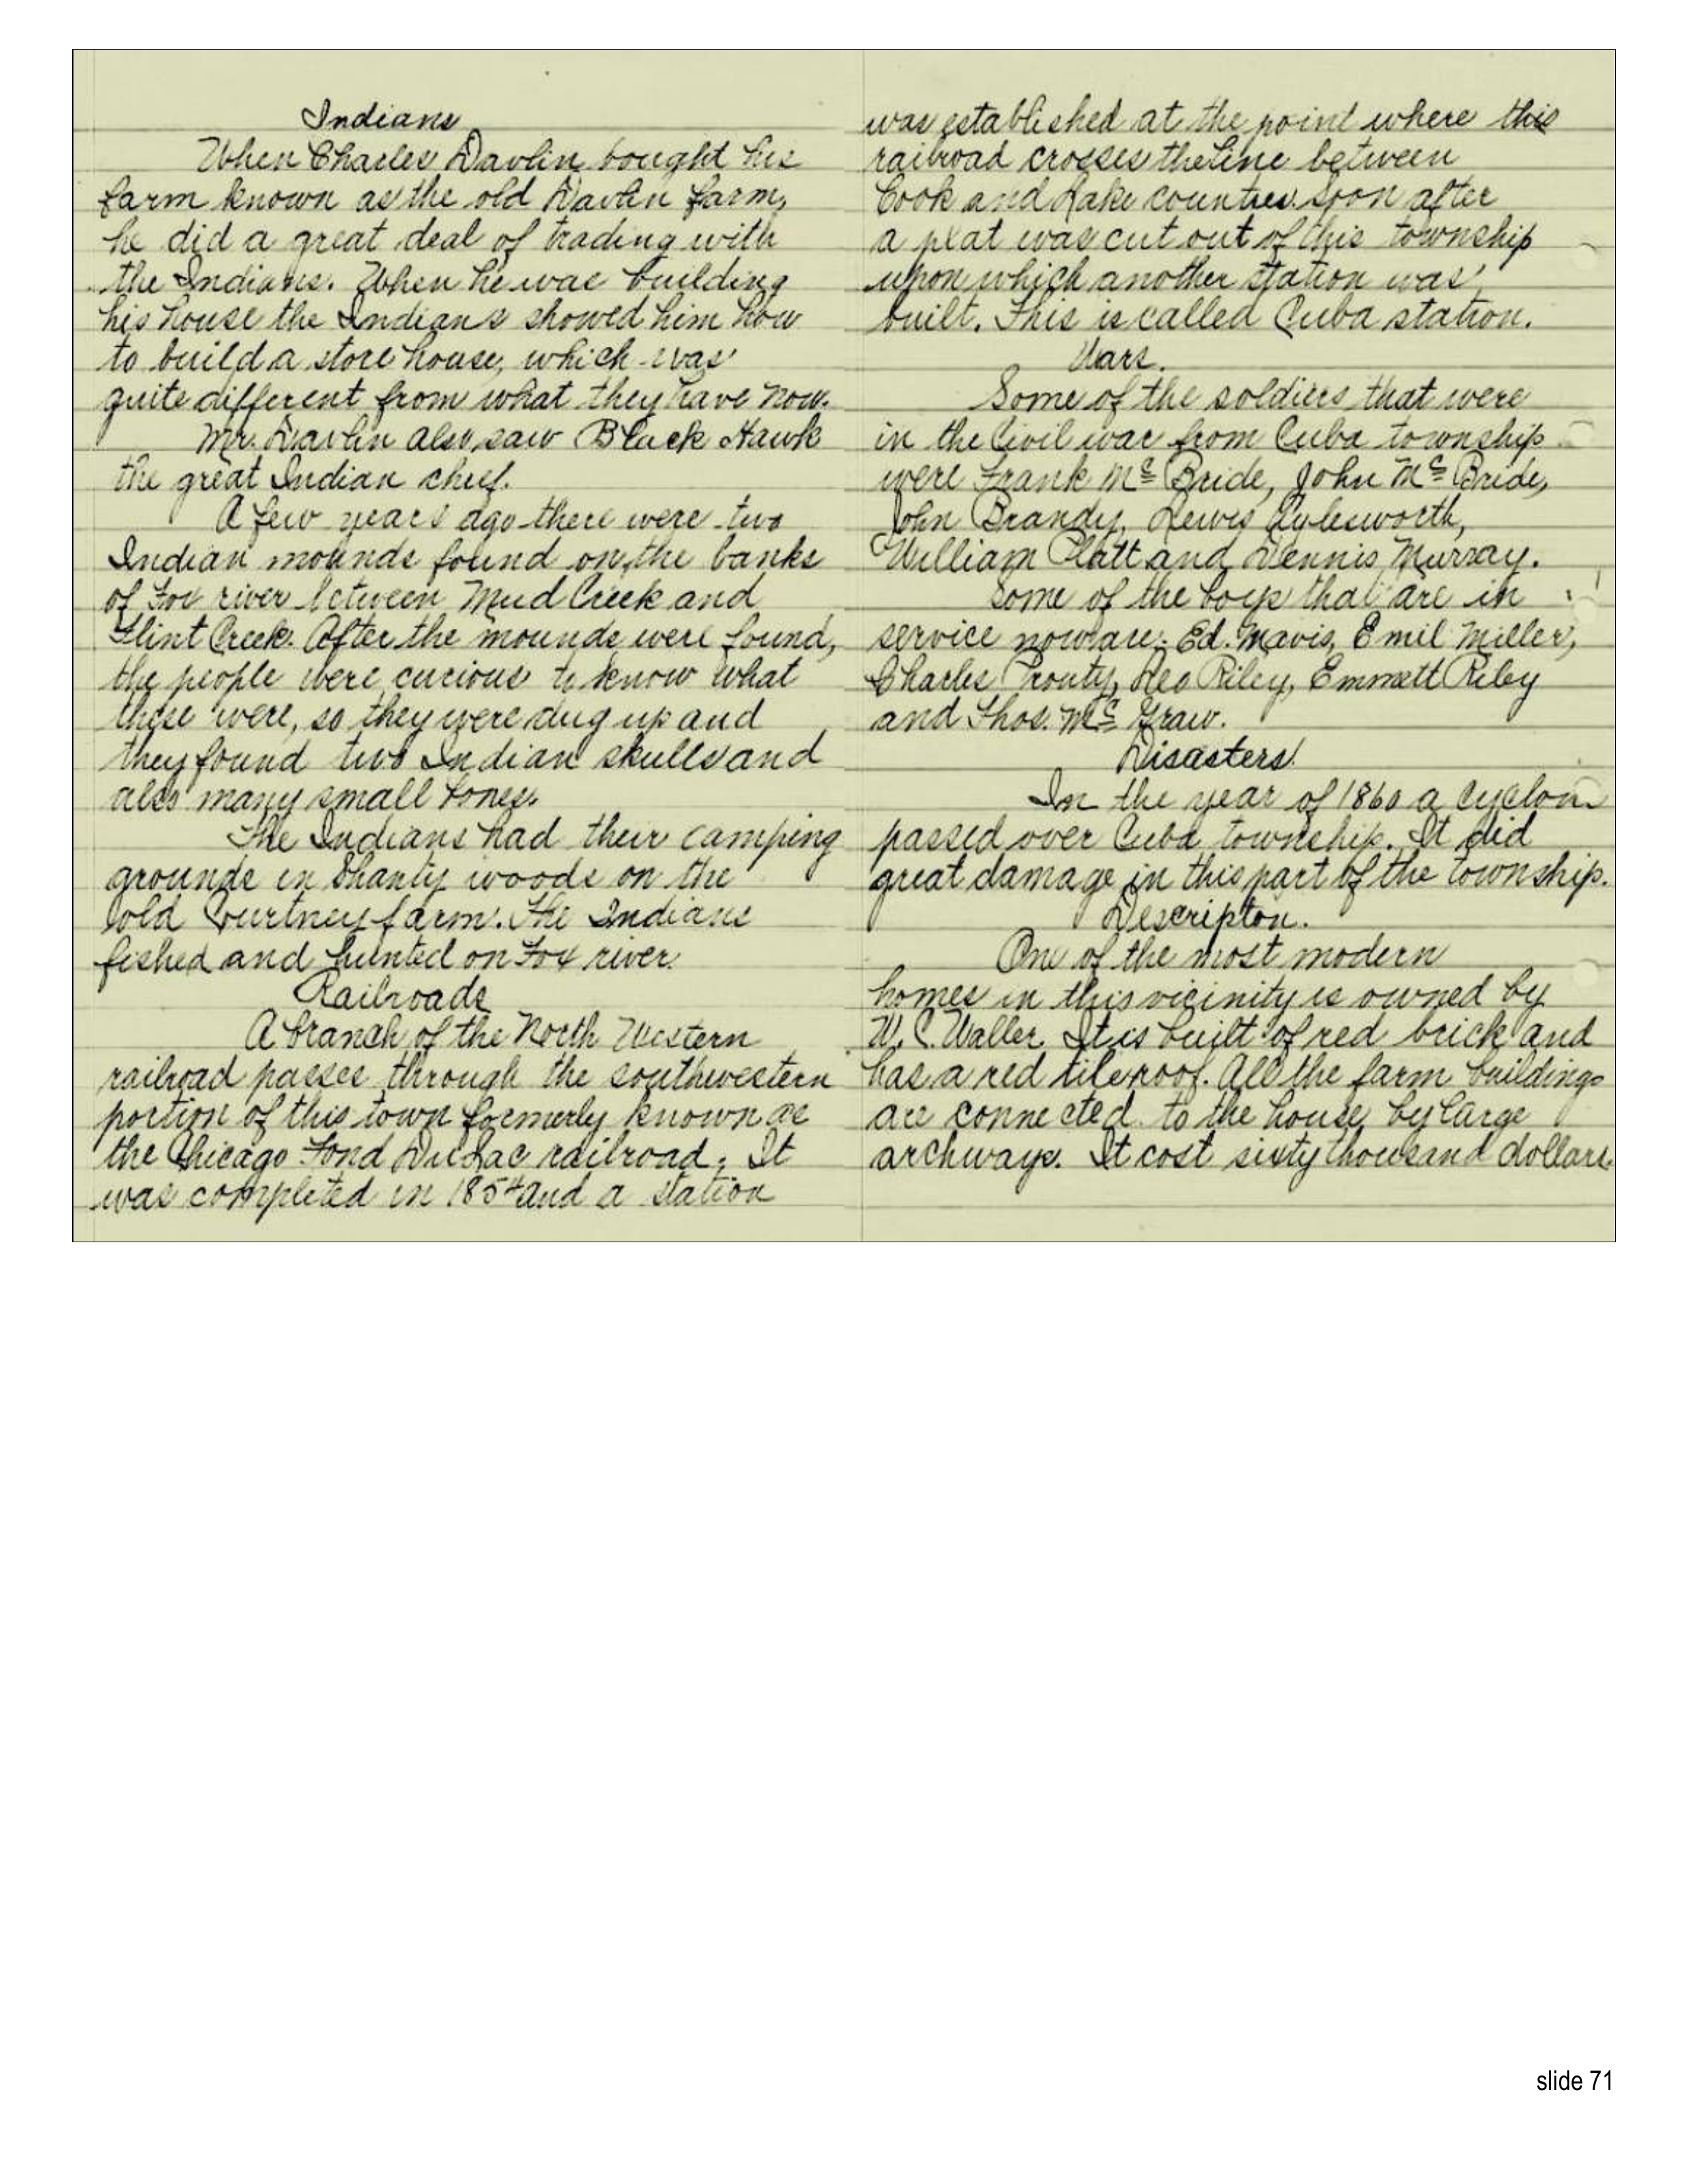 Indians
When Charles Davlin bought his
farm known as the old Davlin farm,
he did a great deal of trading with
the Indians. When he was building
his house the Indians showed him how
to build a store house, which was
quite different from what they have now.
Mr. Davlin also saw Black Hawk
the great Indian chief.
A few years ago there were two
Indian mounds found on the banks
of Fox river between Mud Creek and
Flint Creek. After the mounds were found,
the people were curious to know what
these were, so they were dug up and
they found two Indian skulls and
also many small bones.
The Indians had their camping
grounds in Shanty woods on the
old Courtney farm. The Indians
fished and hunted on Fox river.
Railroads
A branch of the North Western
railroad passes through the southwestern
portion of this town formerly known as
the Chicago Fond Du Lac railroad. It
was completed in 1854 and a station
was established at the point where this
railroad crosses the line between
Cook and Lake counties. Soon after
a plat was cut out of this township
upon which another station was
built. This is called Cuba station.
Wars.
Some of the soldiers that were
in the Civil war from Cuba township
were Frank McBride, John McBride,
John Brandy, Lewis Aylesworth,
William Platt and Dennis Murray.
Some of the boys that are in
service now are: Ed. Mavis, Emil Miller,
Charles Prouty, Leo Riley, Emmett Riley
and Thos. McGraw.
Disasters.
In the year of 1860 a cyclone
passed over Cuba township. It did
great damage in this part of the township.
Descripton.
One of the most modern
homes in this vicinity is owned by
W. C. Waller. It is built of red brick and
has a red tile roof. All the farm buildings
are connected to the house by large
archways. It cost sixty thousand dollars.
slide 71